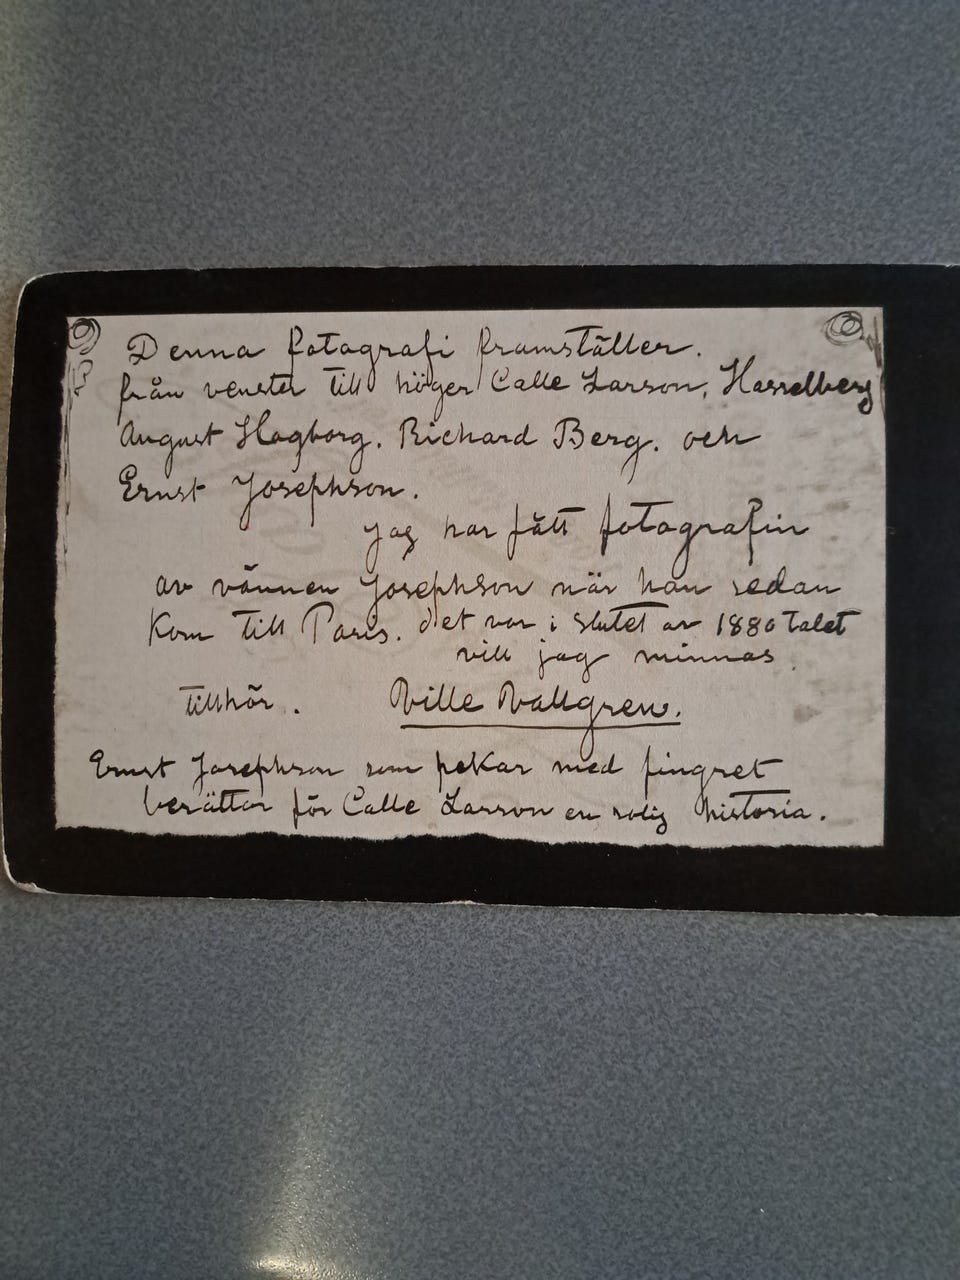 Denna fotografi framställer.
från venster till höger Calle Larson, Hasselberg
August Hagborg. Richard Berg. och
Ernst Josephson.
Jag har fått fotografin
av vännen Josephson när han sedan
kom till Paris. det var i slutet av 1880 talet
vill jag minnas.
tillhör. Ville Vallgren.
Ernst Josephson som pekar med fingret
berättar för Calle Larson en rolig historia.